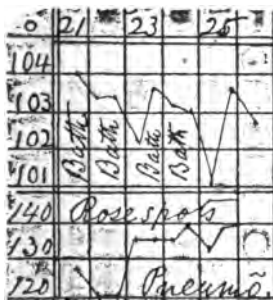 ° 21 23 25
104
103
102
101
Bath Bath Bath Bath
140 Rose spots
130
120 Pneumõ